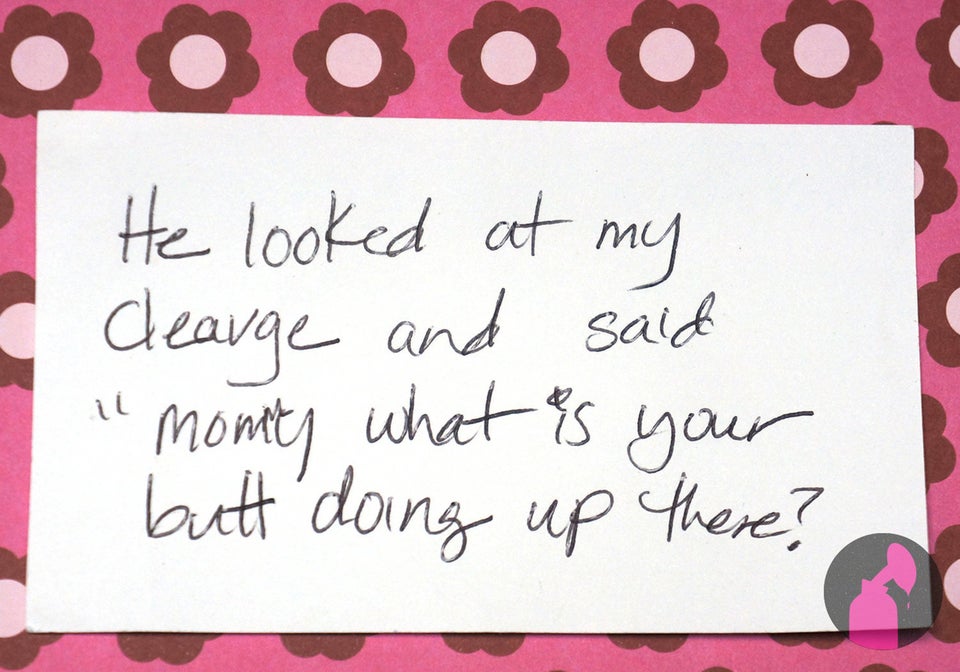 He looked at my
Cleavge and said
"mommy what is your
butt doing up there?